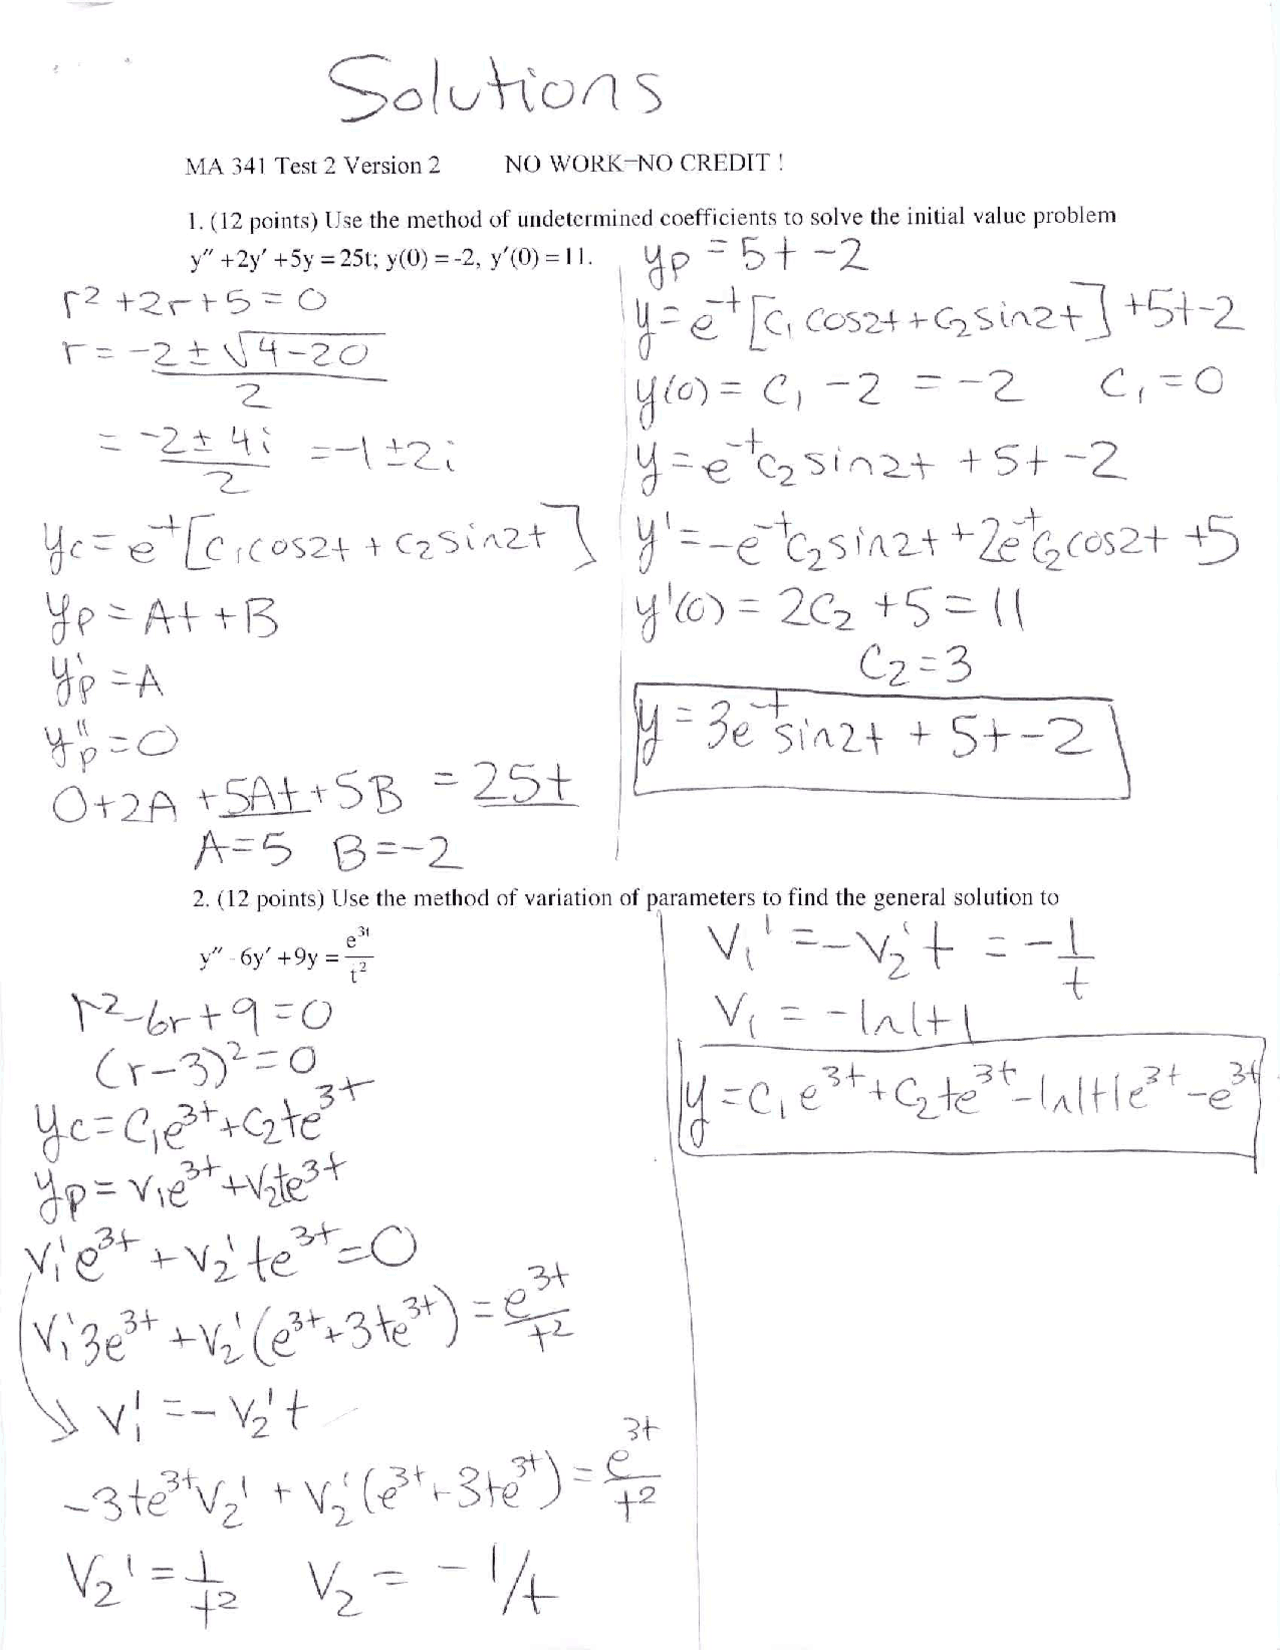 Solutions
MA 341 Test 2 Version 2 NO WORK–NO CREDIT !
1. (12 points) Use the method of undetermined coefficients to solve the initial value problem
y″ +2y′ +5y = 25t; y(0) = -2, y′(0) = 11.
r² + 2r + 5 = 0
r = (-2 ± √(4-20))/2
= (-2 ± 4i)/2 = -1 ± 2i
yc = e^-t [c₁cos2t + c₂sin2t]
yp = At + B
y'p = A
y''p = 0
0 + 2A + 5At + 5B = 25t
A = 5 B = -2
yp = 5t - 2
y = e^-t [c₁ cos2t + c₂sin2t] + 5t - 2
y(0) = c₁ - 2 = -2 c₁ = 0
y = e^-t c₂ sin2t + 5t - 2
y' = -e^-t c₂ sin2t + 2e^-t c₂ cos2t + 5
y'(0) = 2c₂ + 5 = 11
c₂ = 3
y = 3e^-t sin2t + 5t - 2
2. (12 points) Use the method of variation of parameters to find the general solution to
y″ - 6y′ +9y = e^3t/t²
r² - 6r + 9 = 0
(r - 3)² = 0
yc = c₁e^3t + c₂te^3t
yp = v₁e^3t + v₂te^3t
v₁'e^3t + v₂'te^3t = 0
v₁'3e^3t + v₂'(e^3t + 3te^3t) = e^3t/t²
v₁' = -v₂'t
-3te^3t v₂' + v₂'(e^3t + 3te^3t) = e^3t/t²
v₂' = 1/t² v₂ = -1/t
v₁' = -v₂'t = -1/t
v₁ = -ln|t|
y = c₁e^3t + c₂te^3t - ln|t|e^3t - e^3t